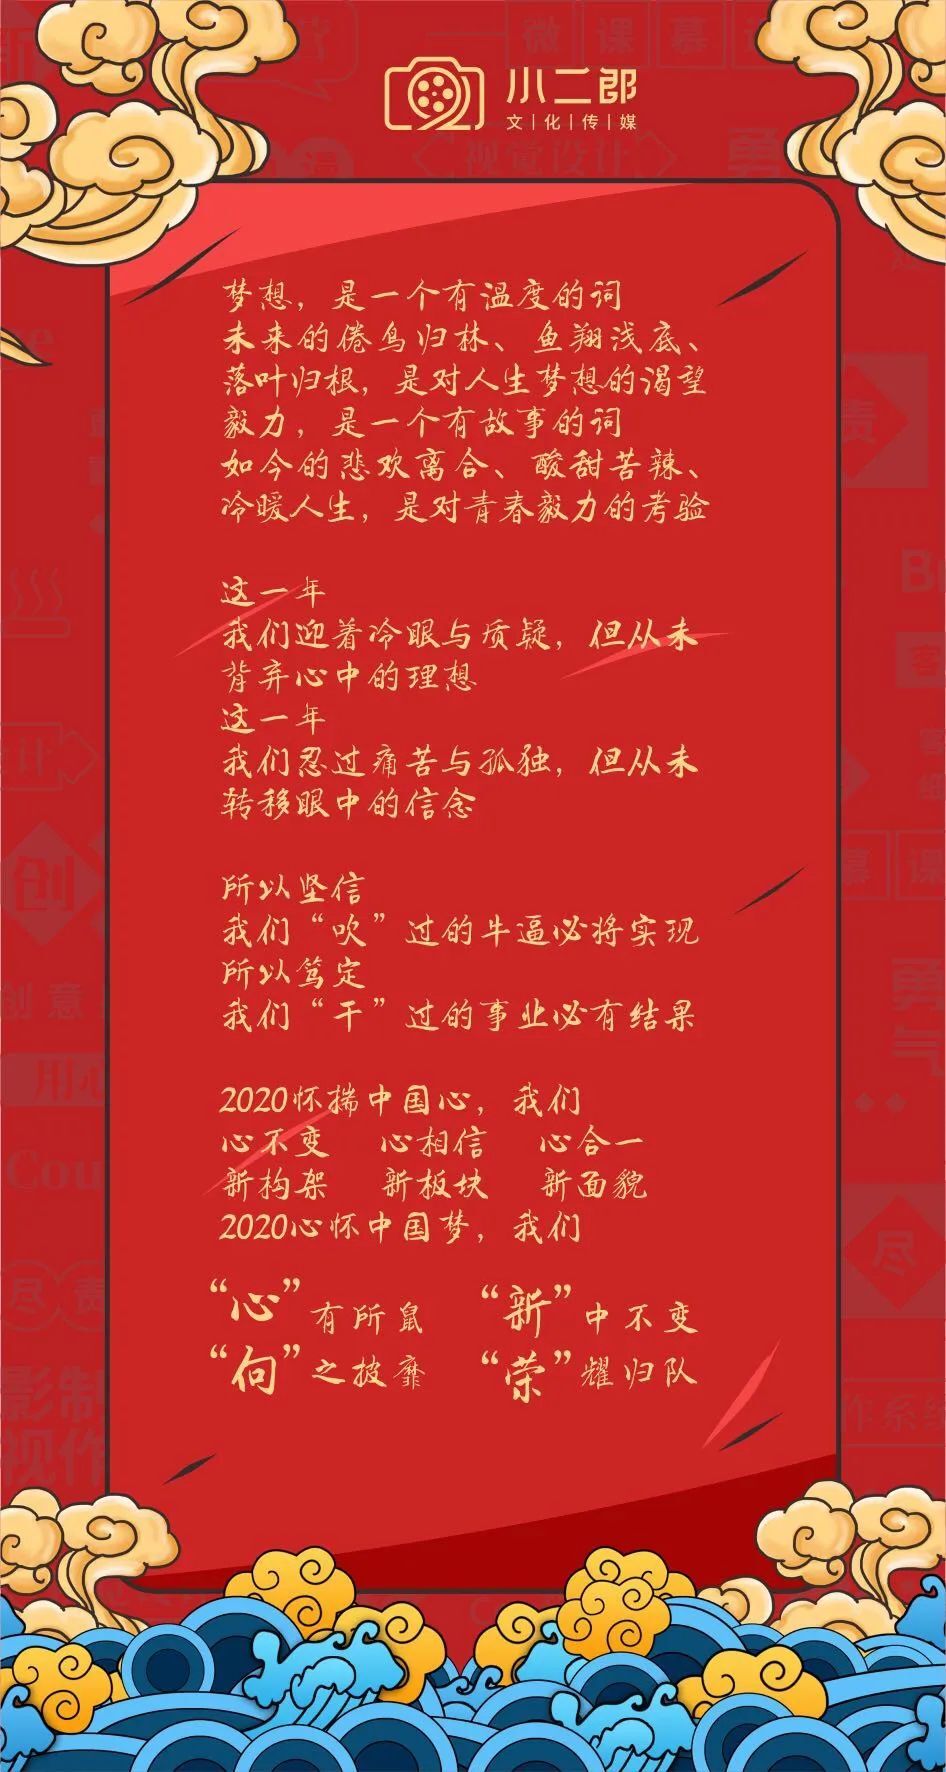 小二郎
文|化|传|媒
微课慕
视觉设计
梦想，是一个有温度的词
未来的倦鸟归林、鱼翔浅底、
落叶归根，是对人生梦想的渴望
毅力，是一个有故事的词
如今的悲欢离合、酸甜苦辣、
冷暖人生，是对青春毅力的考验
这一年
我们迎着冷眼与质疑，但从未
背弃心中的理想
这一年
我们忍过痛苦与孤独，但从未
转移眼中的信念
所以坚信
我们“吹”过的牛逼必将实现
所以笃定
我们“干”过的事业必有结果
2020怀揣中国心，我们
心不变 心相信 心合一
新构架 新板块 新面貌
2020心怀中国梦，我们
“心”有所鼠 “新”中不变
“向”之披靡 “荣”耀归队
责
创
创意
用心
Cou
尽责
影制
视作
勇气
尽
作系统
慕课